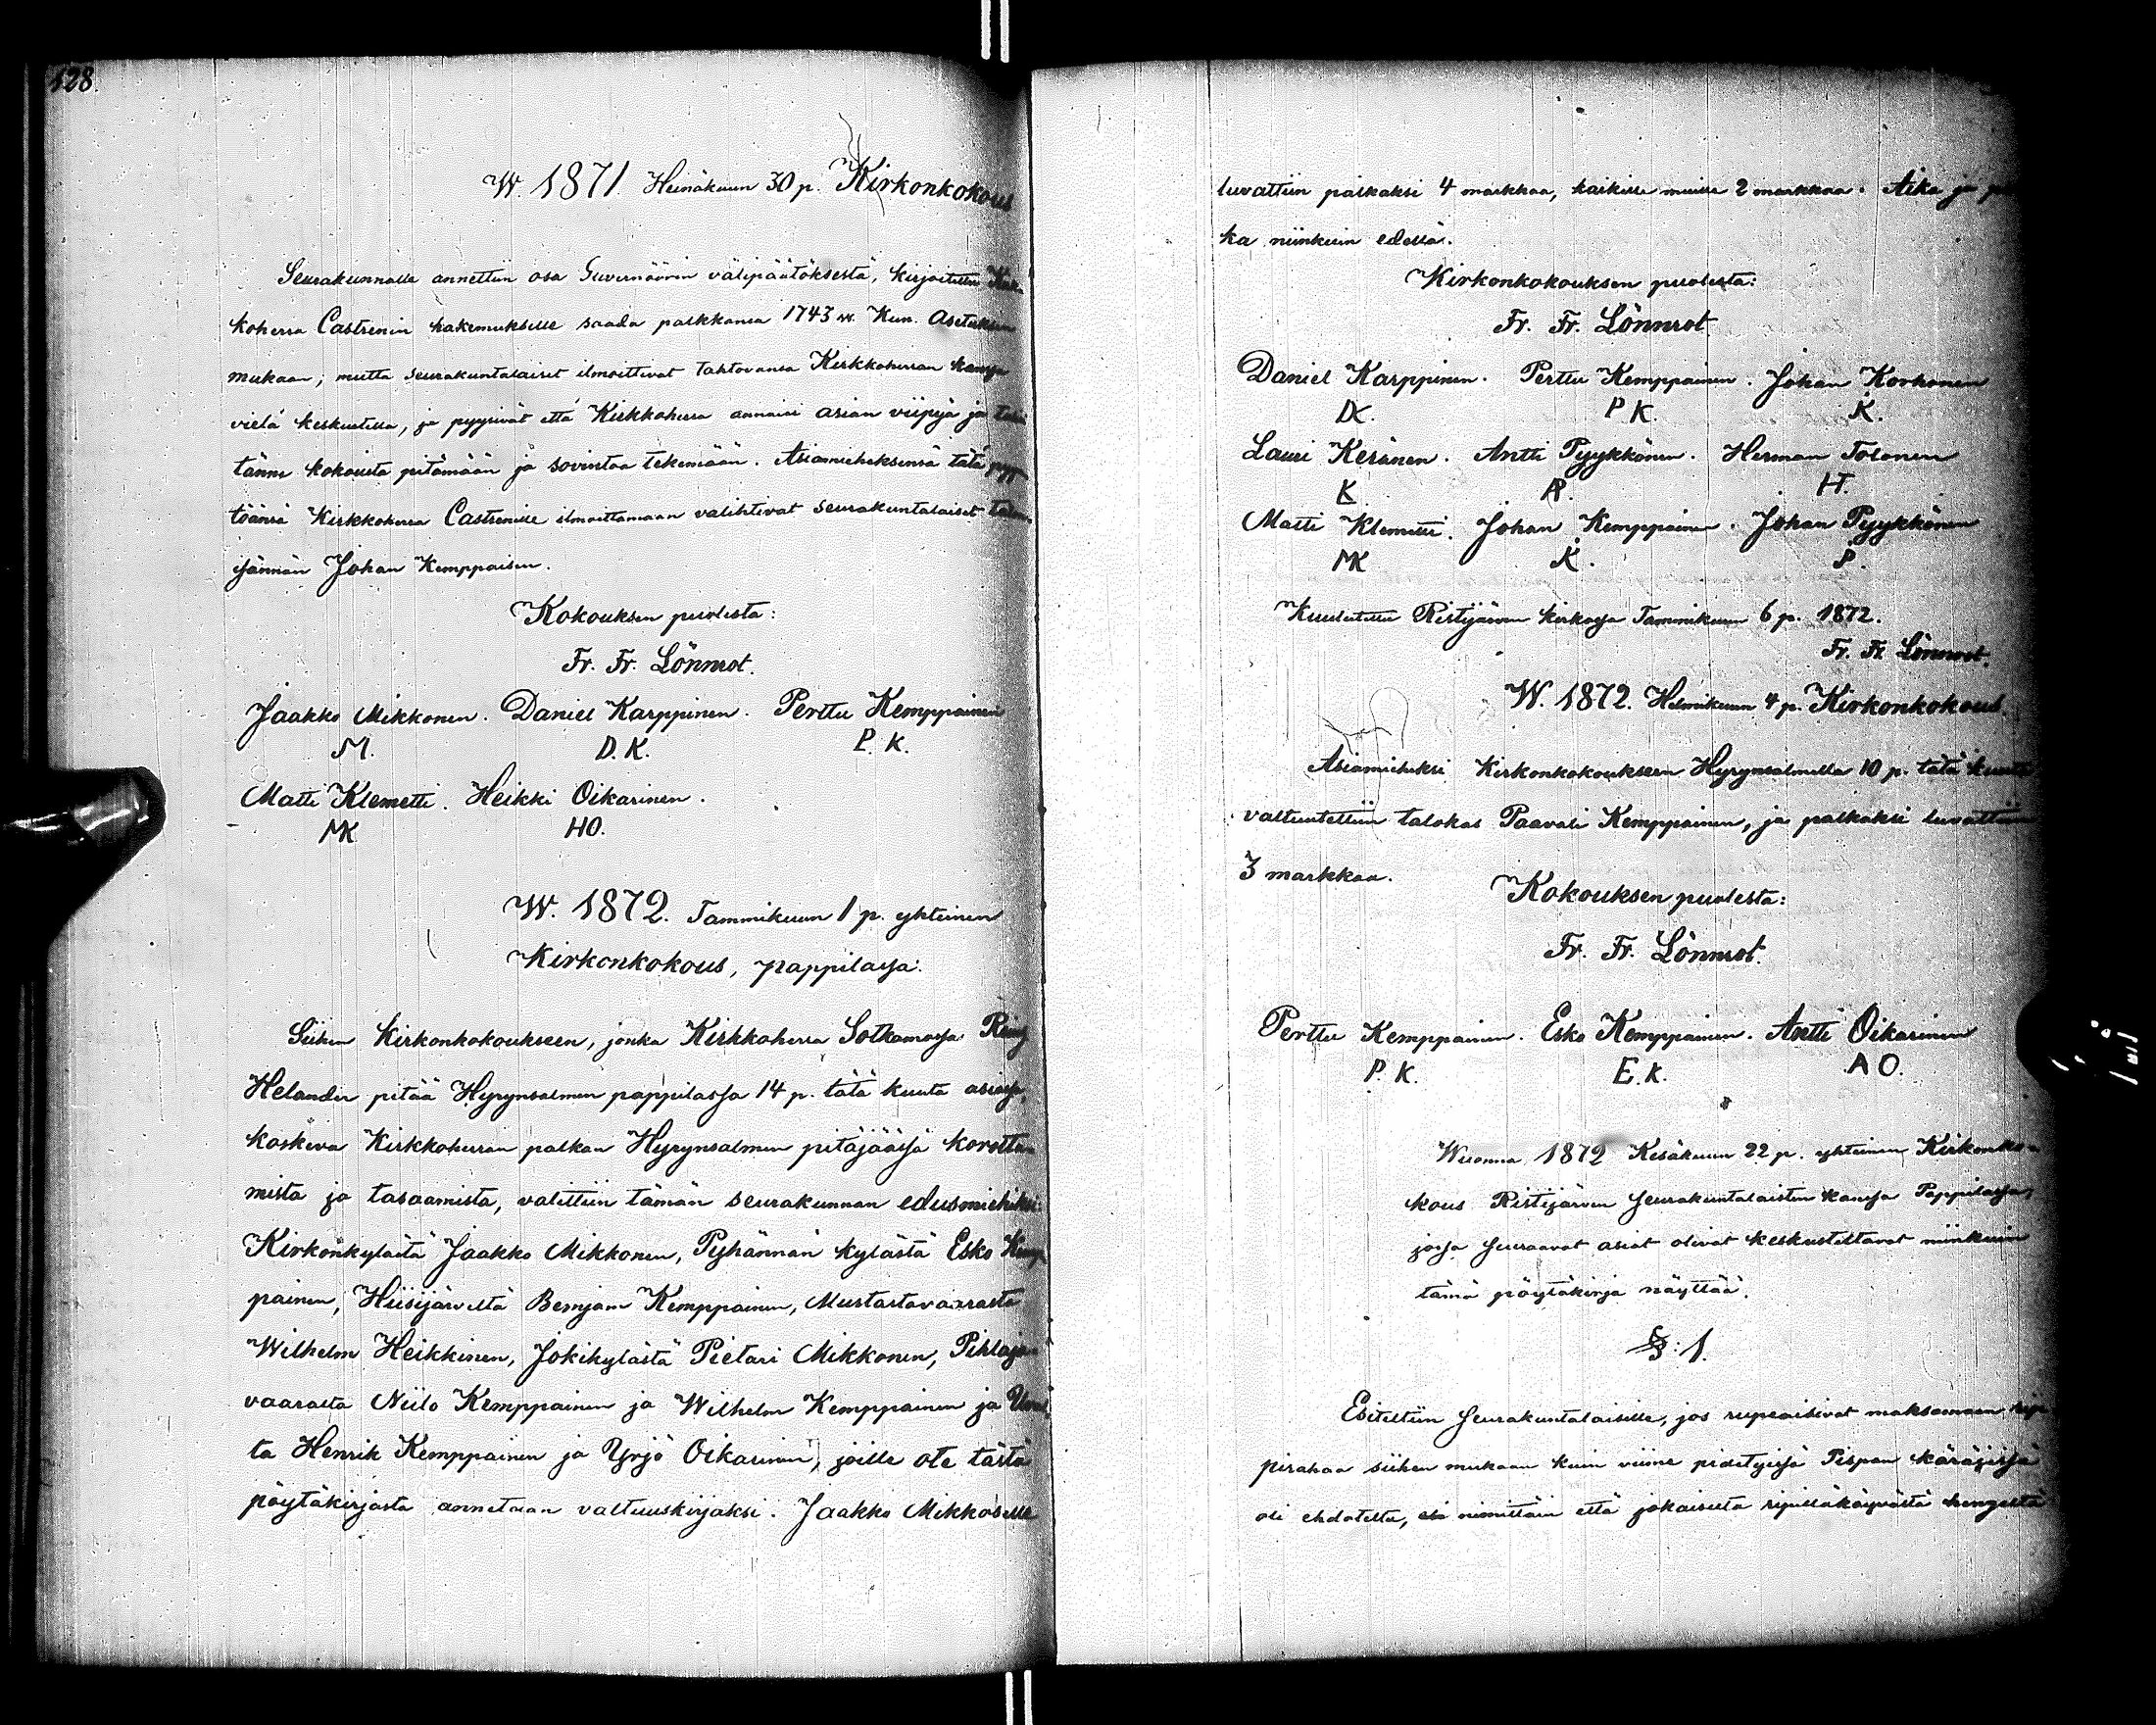 128.
W. 1871. Heinäkuun 30 p. Kirkonkokous
Seurakunnalle annettiin osa Guvernöörin välipäätöksestä, kirjoitettu Kirk
koherra Castrenin hakemukselle saada palkkansa 1743 w. Kun. Asetuksen
mukaan; mutta seurakuntalaiset ilmoittivat tahtovansa Kirkkoherran kanssa
vielä keskustella, ja pyysivät että Kirkkoherra antaisi asian viipyä ja tulisi
tänne kokousta pitämään ja sovintoa tekemään. Asiamieheksensä tätä pyy
töänsä Kirkkoherra Castrenille ilmoittamaan valihtivat seurakuntalaiset talon-
isännän Johan Kemppaisen.
Kokouksen puolesta:
Fr. Fr. Lönnrot.
Jaakko Mikkonen. Daniel Karppinen. Perttu Kemppainen
M. D. K. P. K.
Matti Klemetti. Heikki Oikarinen.
MK HO.
W. 1872. Tammikuun 1 p. yhteinen
Kirkonkokous, pappilassa:
Siihen Kirkonkokoukseen, jonka Kirkkoherra Sotkamossa
Helander pitää Hyrynsalmen pappilassa 14 p. tätä kuuta asiassa,
koskeva Kirkkoherran palkan Hyrynsalmen pitäjäässä korotta-
mista ja tasaamista, valittiin tämän seurakunnan edusmiehiksi:
Kirkonkylästä Jaakko Mikkonen, Pyhännän kylästä Esko Kemp
painen, Hiisijärveltä Benjam Kemppainen, Mustastavaarasta
Wilhelm Heikkinen, Jokikylästä Pietari Mikkonen, Pihlaja-
vaarasta Niilo Kemppainen ja Wilhelm Kemppainen ja
ta Henrik Kemppainen ja Yrjö Oikarinen, joille ote tästä
pöytäkirjasta annetaan valtuuskirjaksi. Jaakko Mikkoselle
luvattiin palkaksi 4 markkaa, kaikille muille 2 markkaa. Aika ja paik
ka niinkuin edellä.
Kirkonkokouksen puolesta:
Fr. Fr. Lönnrot
Daniel Karppinen. Perttu Kemppainen. Johan Korhonen
DK. P K. K.
Lauri Keränen. Antti Pyykkönen. Herman Tolonen
K AP. H.
Matti Klemetti. Johan Kemppainen. Johan Pyykkönen
MK K. P.
Kuulutettu Ristijärven kirkossa Tammikuun 6 p. 1872.
Fr. Fr. Lönnrot.
W. 1872. Helmikuun 4 p. Kirkonkokous.
Asiamieheksi Kirkonkokoukseen Hyrynsalmella 10 p. tätä kuuta
valtuutettiin talokas Paavali Kemppainen, ja palkaksi luvattiin
3 markkaa.
Kokouksen puolesta:
Fr. Fr. Lönnrot.
Perttu Kemppainen. Esko Kemppainen. Antti Oikarinen
P. K. E. K. A O.
Wuonna 1872 Kesäkuun 22 p. yhteinen Kirkonko-
kous Ristijärven Seurakuntalaisten kanssa Pappilassa,
jossa seuraavat asiat olivat keskusteltavat niinkuin
tämä pöytäkirja näyttää.
§: 1.
Esiteltiin Seurakuntalaisille, jos rupeaisivat maksamaan
pirahaa siihen mukaan kuin viime pidetyissä Pispan käräjissä
oli ehdoteltu, nimittäin että jokaiselta ripilläkäyvästä hengestä